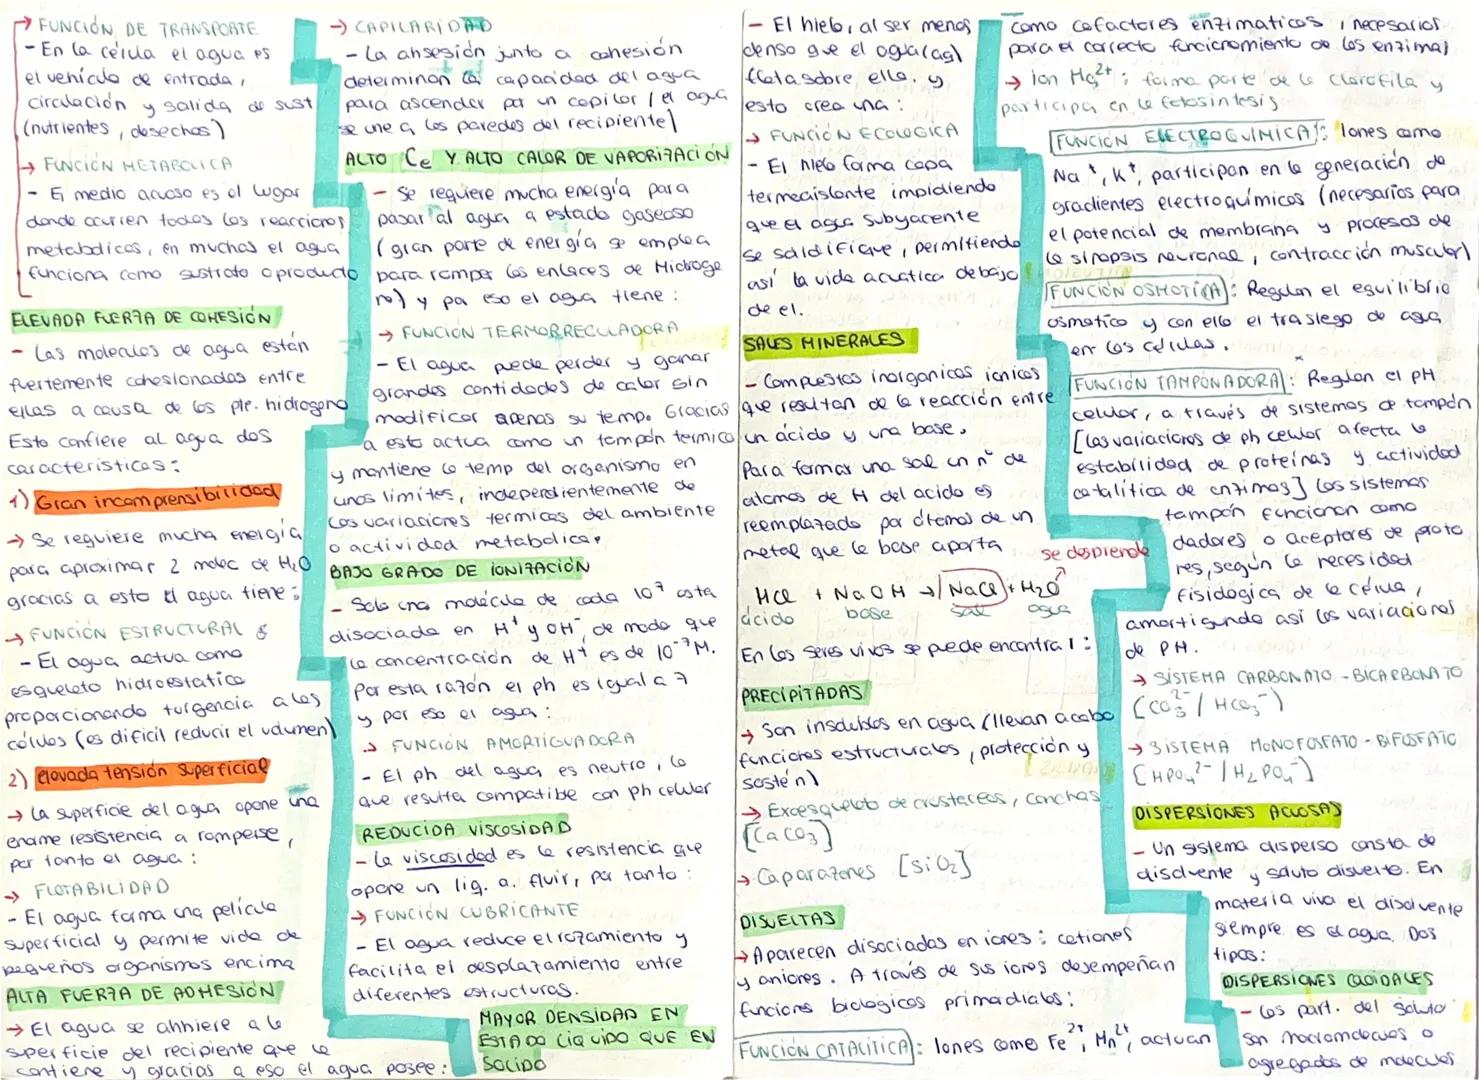 → FUNCIÓN DE TRANSPORTE
- En la célula el agua es
el vehículo de entrada,
circulación y salida de sust
(nutrientes, desechos)
→ FUNCIÓN METABOLICA
- El medio acuoso es el lugar
donde ocurren todas las reacciones
metabolicas, en muchas el agua
funciona como sustrato o producto
ELEVADA FUERZA DE COHESIÓN
- Las moleculas de agua están
fuertemente cohesionadas entre
ellas a causa de los pte. hidrogeno
Esto confiere al agua dos
caracteristicas:
1) Gran incomprensibilidad
→ Se requiere mucha energía
para aproximar 2 molec de H₂O
gracias a esto el agua tiene:
→ FUNCIÓN ESTRUCTURAL:
- El agua actua como
esqueleto hidroestatico
proporcionando turgencia a las
células (es dificil reducir el volumen)
2) elevada tensión superficial
→ La superficie del agua opone una
enorme resistencia a romperse,
por tanto el agua:
→ FLOTABILIDAD
- El agua forma una película
superficial y permite vida de
pequeños organismos encima
ALTA FUERZA DE ADHESIÓN
→ El agua se ahhiere a la
superficie del recipiente que la
contiene y gracias a eso el agua posee:
→ CAPILARIDAD
- La ahsesión junto a cohesión
determinan la capacidad del agua
para ascender por un capilar (el agua
se une a las paredes del recipiente)
ALTO Ce Y ALTO CALOR DE VAPORIZACIÓN
- Se requiere mucha energía para
pasar al agua a estado gaseoso
(gran parte de energía se emplea
para romper los enlaces de Hidroge
no) y por eso el agua tiene:
→ FUNCIÓN TERMORREGULADORA
- El agua puede perder y ganar
grandes cantidades de calor sin
modificar apenas su temp. Gracias
a esto actua como un tampón termico
y mantiene la temp del organismo en
unos limites, independientemente de
las variaciones termicas del ambiente
o actividad metabolica.
BAJO GRADO DE IONIZACIÓN
- Solo una molécula de cada 10⁷ esta
disociada en H⁺ y OH⁻, de modo que
la concentración de H⁺ es de 10⁻⁷M.
Por esta razón el ph es igual a 7
y por eso el agua:
→ FUNCIÓN AMORTIGUADORA
- El ph del agua es neutro, lo
que resulta compatible con ph celular
REDUCIDA VISCOSIDAD
- La viscosidad es la resistencia que
opone un liq. a. fluir, por tanto:
→ FUNCIÓN LUBRICANTE
- El agua reduce el rozamiento y
facilita el desplazamiento entre
diferentes estructuras.
MAYOR DENSIDAD EN
ESTADO LIQUIDO QUE EN
SOLIDO
- El hielo, al ser menos
denso que el agua(aq)
flota sobre ella. y
esto crea una:
→ FUNCIÓN ECOLOGICA
- El hielo forma capa
termoaislante impidiendo
que el agua subyacente
se solidifique, permitiendo
así la vida acuatica debajo
de el.
SALES MINERALES
- Compuestos inorganicos ionicos
que resultan de la reacción entre
un ácido y una base.
Para formar una sal un nº de
atomos de H del acido es
reemplazado por átomos de un
metal que la base aporta
se desprende
HCl + NaOH → NaCl + H₂O
ácido base sal agua
En los seres vivos se puede encontrar:
PRECIPITADAS
→ Son insolubles en agua (llevan a cabo
funciones estructurales, protección y
sostén)
→ Exoesqueleto de crustaceos, conchas
[CaCO₃]
→ Caparazones [SiO₂]
DISUELTAS
→ Aparecen disociadas en iones: cationes
y aniones. A través de sus iones desempeñan
funciones biologicas primordiales:
FUNCIÓN CATALITICA: Iones como Fe²⁺, Mn²⁺, actuan
como cofactores enzimaticos, necesarios
para el correcto funcionamiento de las enzimas
→ ion Mg²⁺: forma parte de la clorofila y
participa en la fotosintesis
FUNCIÓN ELECTROQUÍMICA: Iones como
Na⁺, K⁺, participan en la generación de
gradientes electroquímicos (necesarios para
el potencial de membrana y procesos de
la sinapsis neuronal, contracción muscular)
FUNCIÓN OSMOTICA: Regulan el equilibrio
osmotico y con ello el traslego de agua
en las células.
FUNCIÓN TAMPONADORA: Regulan el pH
celular, a través de sistemas de tampón
[las variaciones de ph celular afecta la
estabilidad de proteínas y actividad
catalítica de enzimas] Los sistemas
tampón funcionan como
dadores o aceptores de proto
nes, según la necesidad
fisiologica de la célula,
amortiguando así las variaciones
de PH.
→ SISTEMA CARBONATO - BICARBONATO
[CO₃²⁻ / HCO₃⁻]
→ SISTEMA MONOFOSFATO - BIFOSFATO
[HPO₄²⁻ / H₂PO₄⁻]
DISPERSIONES ACUOSAS
- Un sistema disperso consta de
disolvente y soluto disuelto. En
materia viva el disolvente
siempre es el agua. Dos
tipos:
DISPERSIONES COLOIDALES
- Las part. del soluto
son macromoleculas o
agregados de moleculas